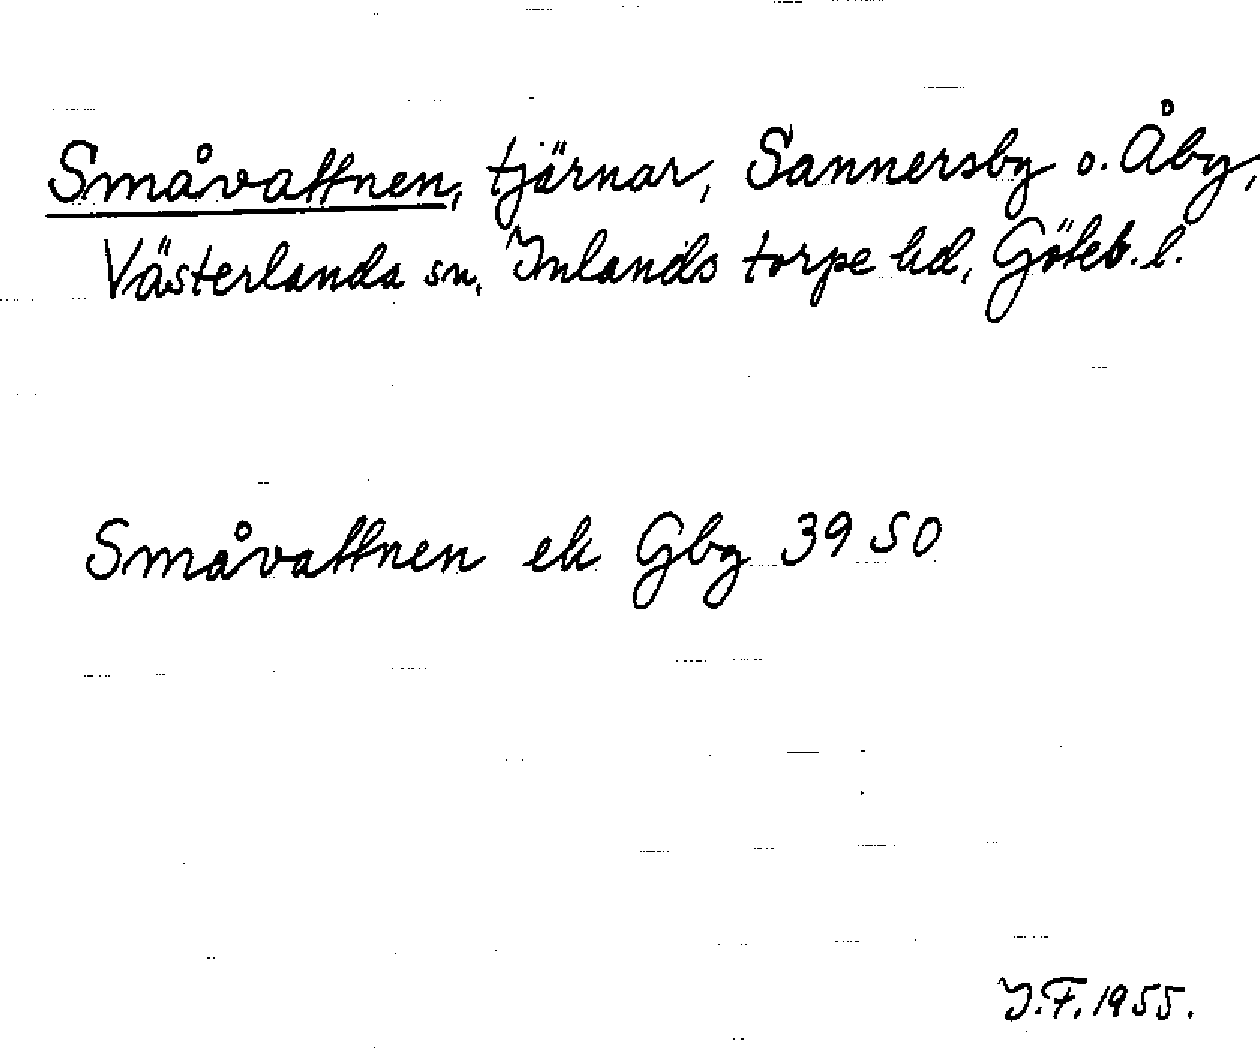 Småvattnen, tjärnar, Sannersby o. Åby,
Västerlanda sn, Inlands torpe hd, Göteb. l.
Småvattnen ek Gbg 39 SO
I.F. 1955.